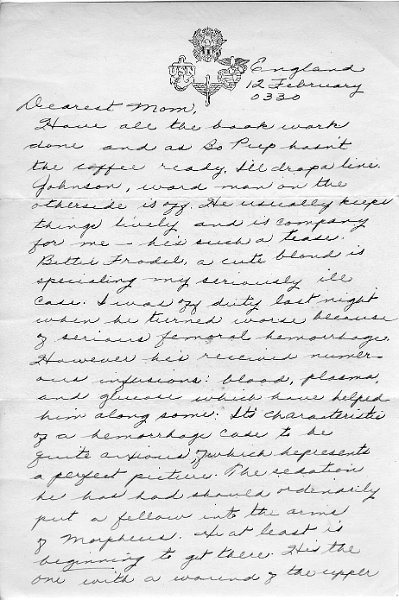 USN
England
12 February
0330
Dearest Mom,
Have all the book work
done and as Bo Peep hasn't
the coffee ready, I'll drop a line.
Johnson, ward man on the
otherside is off. He usually keeps
things lively and is company
for me - he's such a tease.
Bettie Frodel, a cute blond is
specialing my seriously ill
case. I was off duty last night
when he turned worse because
of serious femoral hemourhage.
However he's received numer-
ous infusions: blood, plasma,
and glucose which have helped
him along some. It's characteristic
of a hemorrhage case to be
quite anxious, of which he presents
a perfect picture. The sedation
he has had should ordenarily
put a fellow into the arms
of Morpheus. He at least is
beginning to get there. He's the
one with a wound of the upper